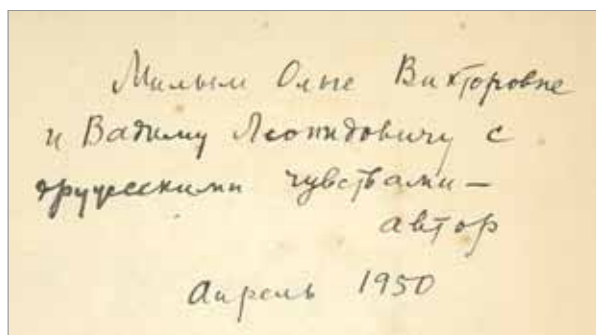 Милым Ольге Викторовне
и Вадиму Леонидовичу с
дружескими чувствами —
автор
Апрель 1950